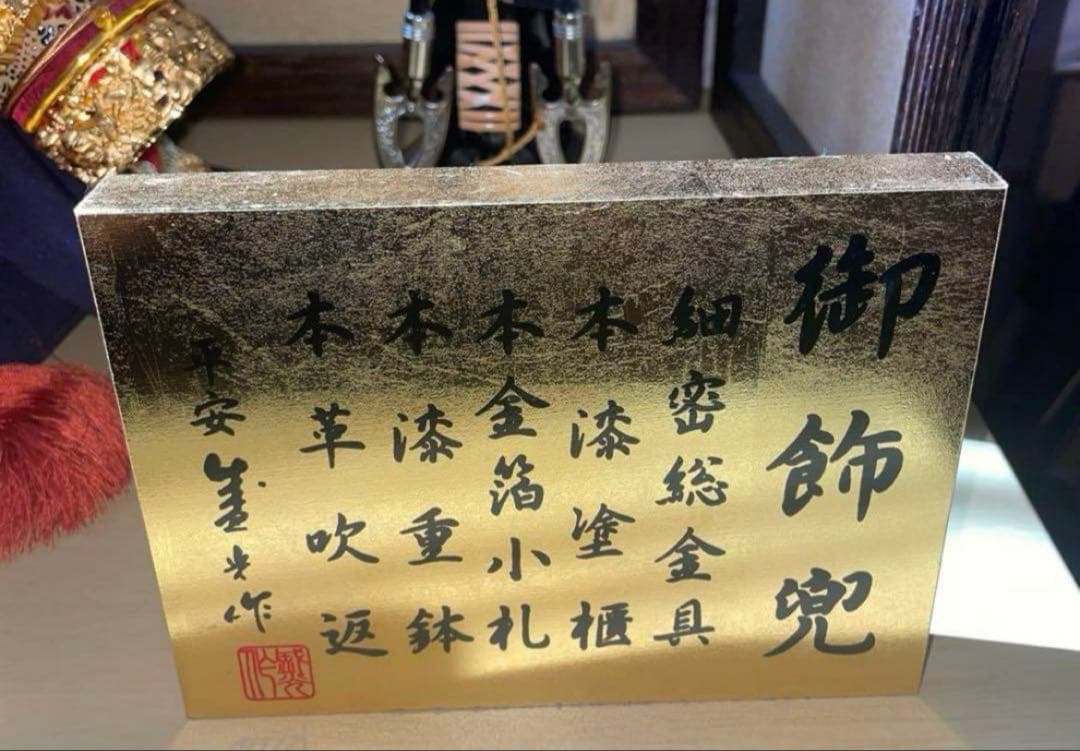 御飾兜
細密総金具
本漆塗櫃
本金箔小札
本漆重鉢
本革吹返
平安 光作